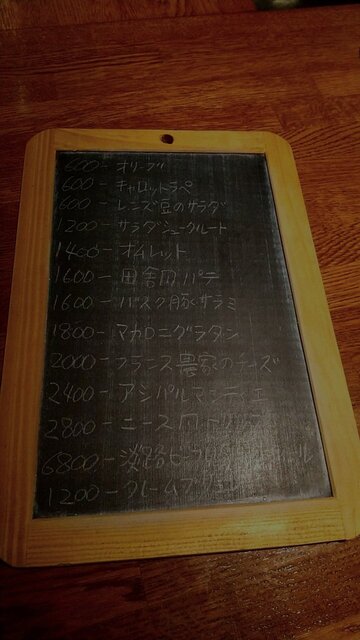 600-オリーブ
600-キャロットラペ
600-レンズ豆のサラダ
1200-サラダシュークルート
1400-オムレット
1600-田舎風パテ
1600-バスク豚くサラミ
1800-マカロニグラタン
2000-フランス農家のチーズ
2400-アシパルマンティエ
2800-ニース
6800-淡路ビーフ
1200-クレームブリュレ